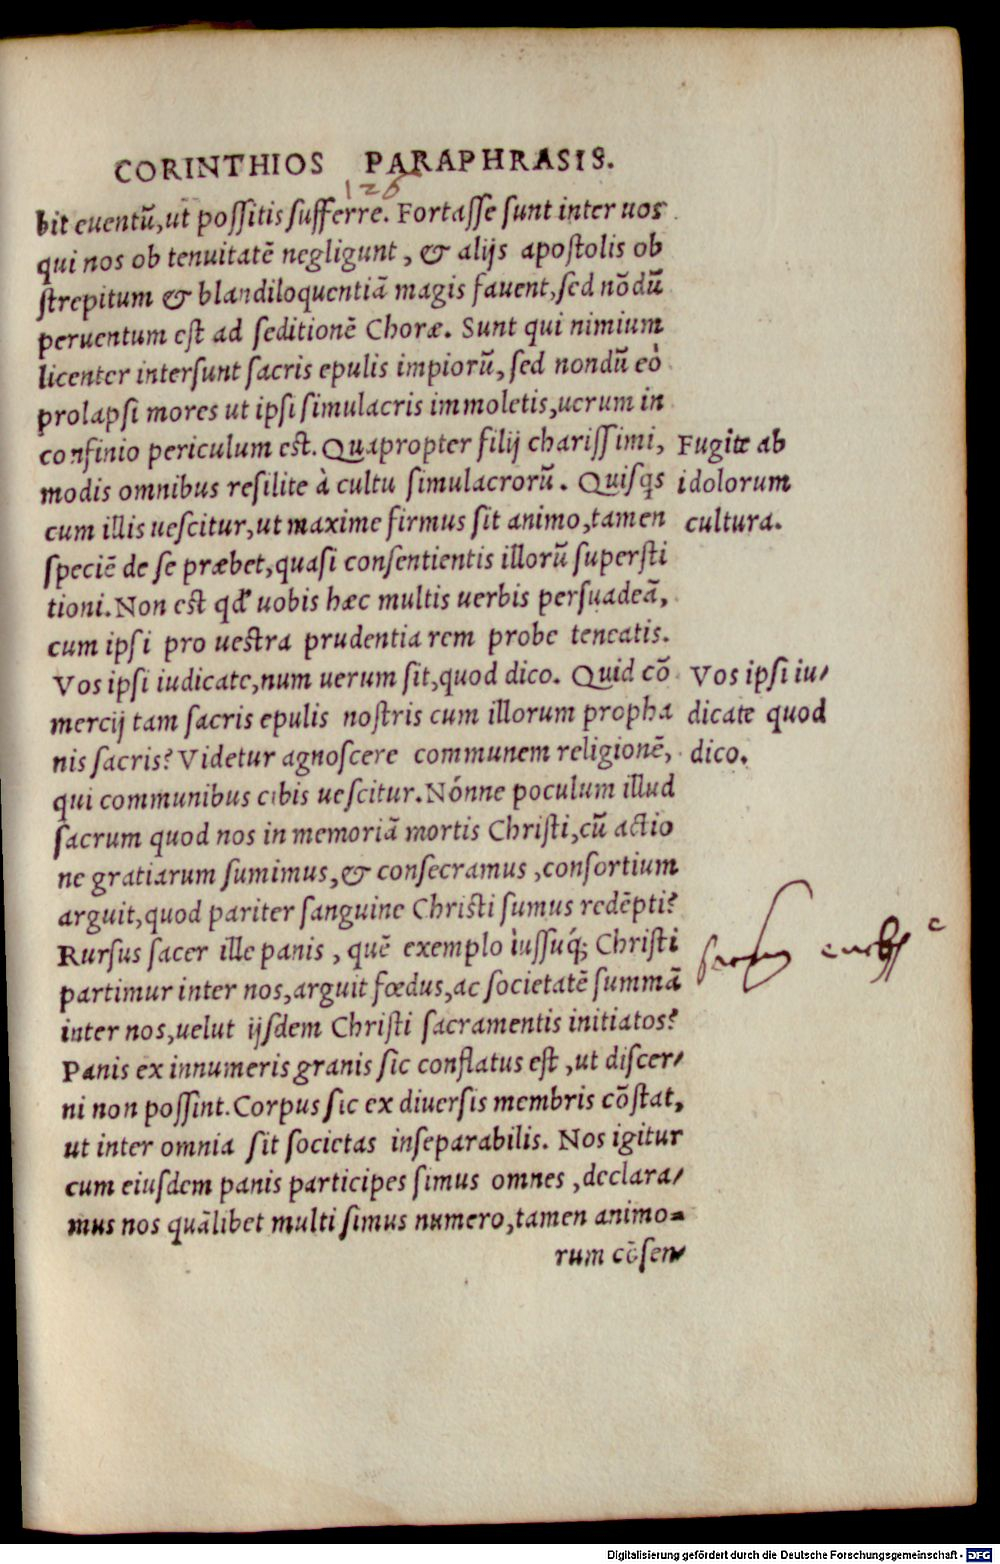 CORINTHIOS PARAPHRASIS.
126
bit euentū,ut poſſitis ſufferre. Fortaſſe ſunt inter uos
qui nos ob tenuitatē negligunt, & alijs apoſtolis ob
ſtrepitum & blandiloquentiā magis fauent,ſed nōdū
peruentum eſt ad ſeditionē Choræ. Sunt qui nimium
licenter interſunt ſacris epulis impiorū, ſed nondū eò
prolapſi mores ut ipſi ſimulacris immoletis,uerum in
confinio periculum eſt. Quapropter filij chariſſimi,
modis omnibus reſilite à cultu ſimulacrorū. Quiſqs
cum illis ueſcitur,ut maxime firmus ſit animo,tamen
ſpeciē de ſe præbet,quaſi conſentientis illorū ſuperſti
tioni. Non eſt qđ uobis hæc multis uerbis perſuadeā,
cum ipſi pro ueſtra prudentia rem probe teneatis.
Vos ipſi iudicate,num uerum ſit,quod dico. Quid cō
mercij tam ſacris epulis noſtris cum illorum propha
nis ſacris? Videtur agnoſcere communem religionē,
qui communibus cibis ueſcitur. Nónne poculum illud
ſacrum quod nos in memoriā mortis Chriſti,cū actio
ne gratiarum ſumimus,& conſecramus ,conſortium
arguit,quod pariter ſanguine Chriſti ſumus redēpti?
Rurſus ſacer ille panis , quē exemplo iuſſuq́; Chriſti
partimur inter nos,arguit fœdus,ac ſocietatē ſummā
inter nos,uelut ijſdem Chriſti ſacramentis initiatos?
Panis ex innumeris granis ſic conflatus eſt ,ut diſcer/
ni non poſſint. Corpus ſic ex diuerſis membris cōſtat,
ut inter omnia ſit ſocietas inſeparabilis. Nos igitur
cum eiuſdem panis participes ſimus omnes ,declara/
mus nos quālibet multi ſimus numero,tamen animo=
rum cōſen/
Fugite ab
idolorum
cultura.
Vos ipſi iu/
dicate quod
dico.
Digitalisierung gefördert durch die Deutsche Forschungsgemeinschaft - DFG